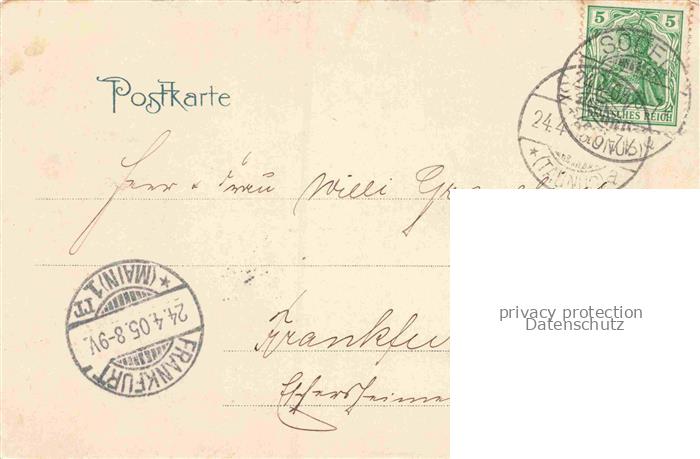 5 5
SODEN
DEUTSCHES REICH
24.4
(TAUNUS)
* (TAUNUS) a
Postkarte
Herr & Frau Willi
privacy protection
Datenschutz
FRANKFURT
24.4.05.8-9V.
* (MAIN) 1 TT
Frankfu
Eschersheime